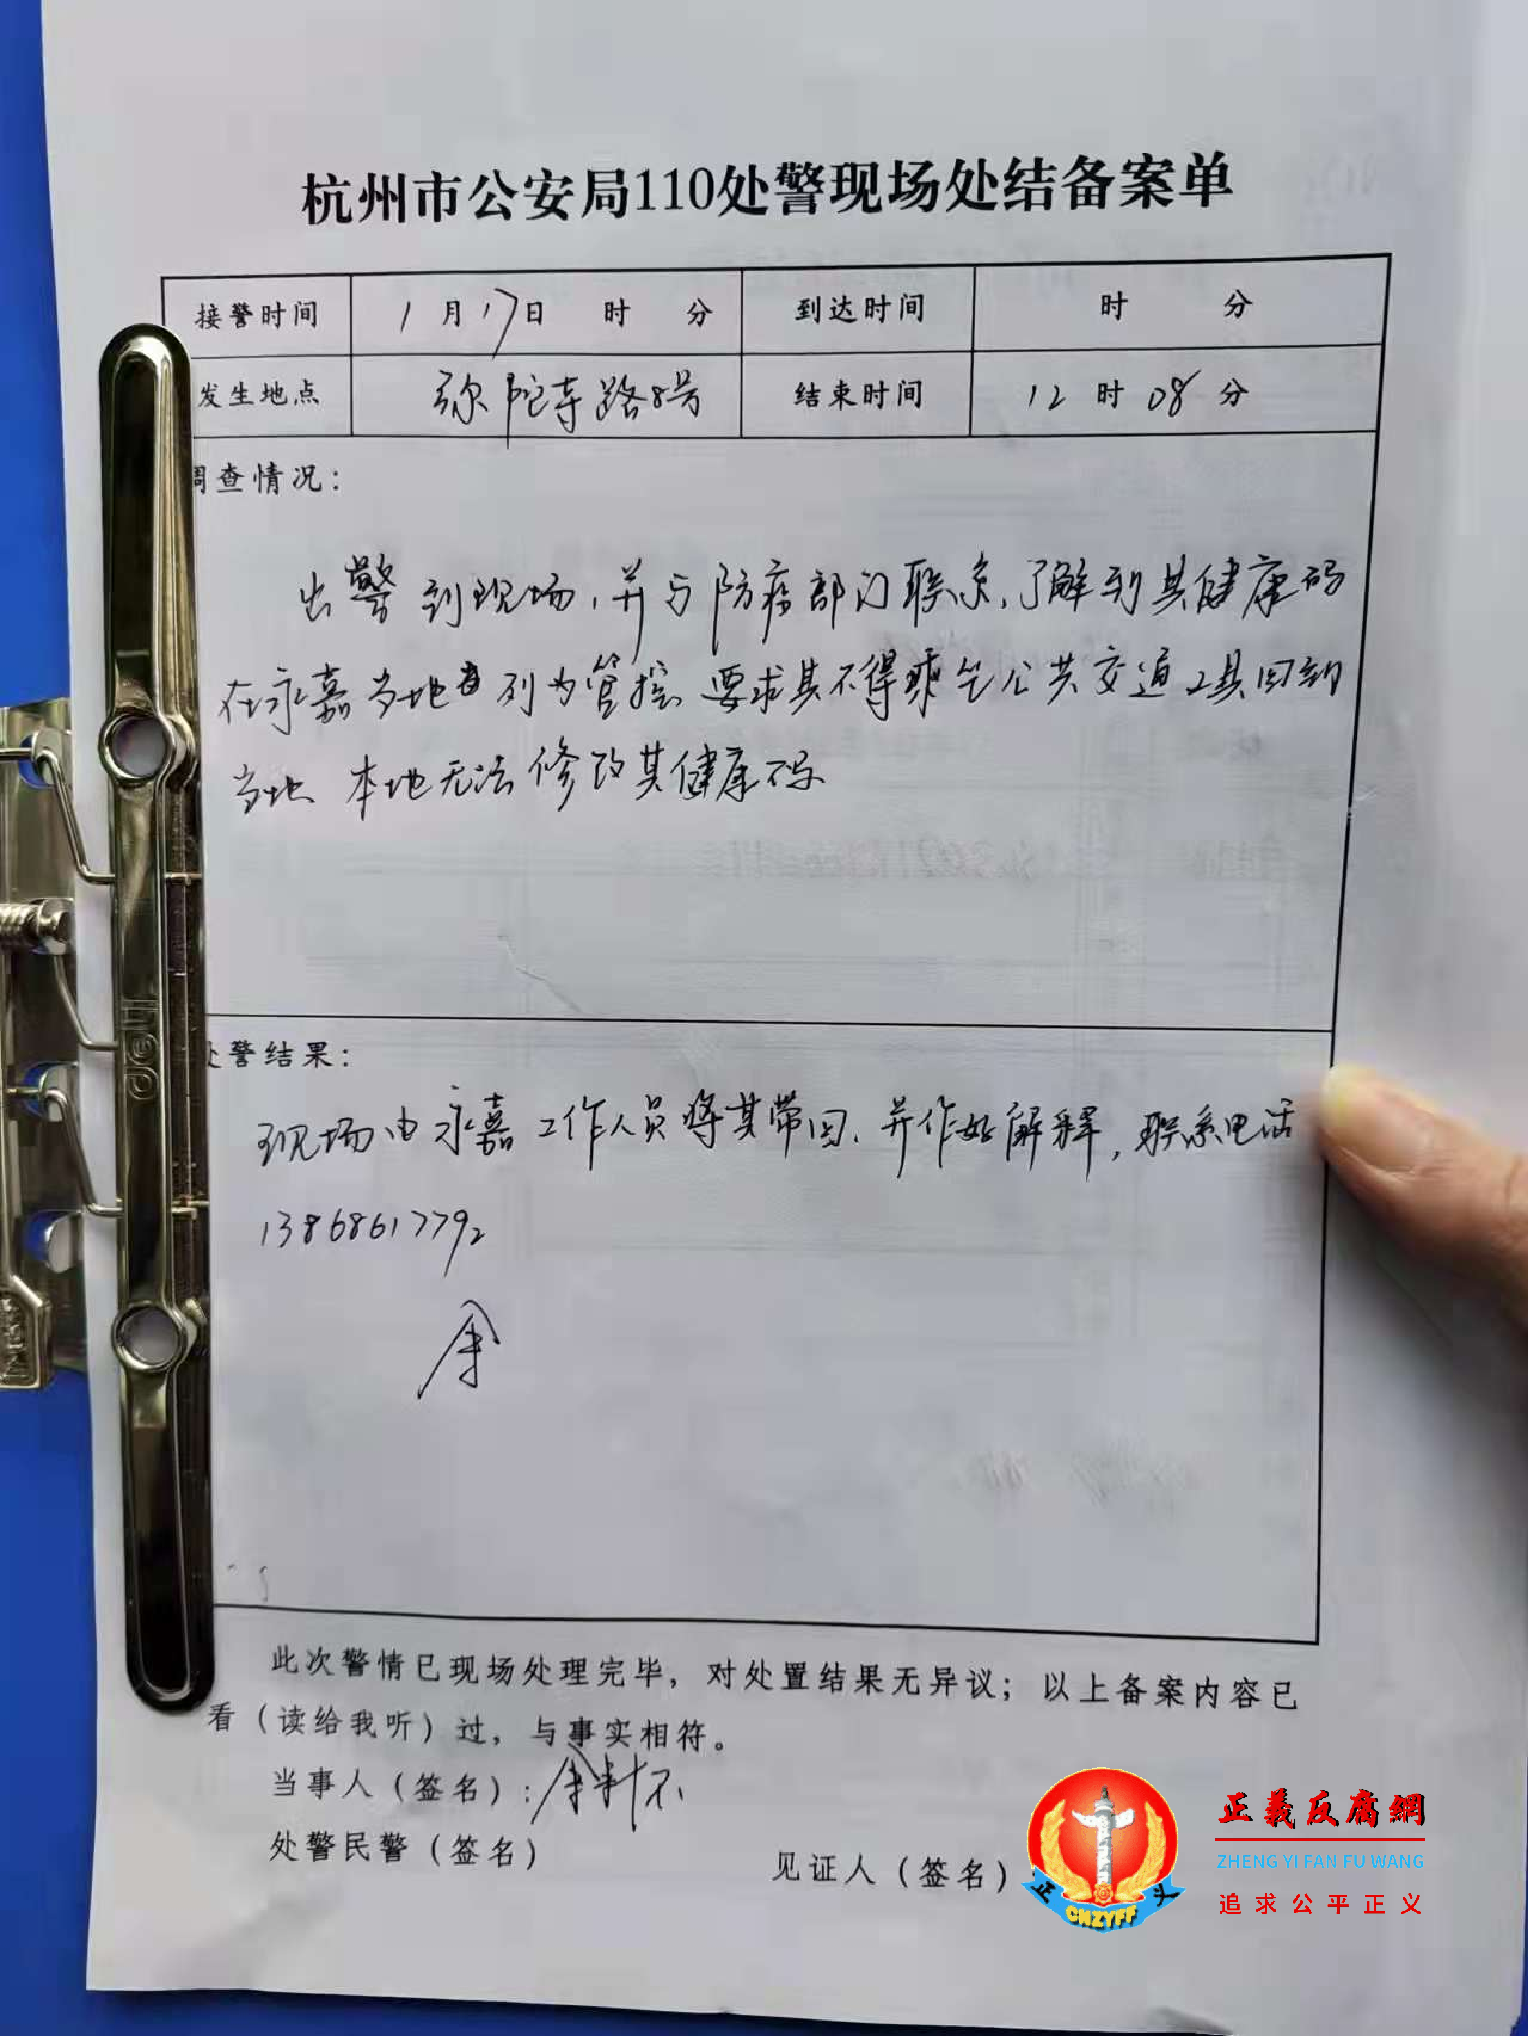 杭州市公安局110处警现场处结备案单
接警时间 1月17日 时 分 到达时间 时 分
发生地点 弥陀寺路8号 结束时间 12时08分
调查情况：
出警到现场，并与防疫部门联系，了解到其健康码
在永嘉当地 列为管控 要求其不得乘坐公共交通工具回到
当地 本地无法修改其健康码
处警结果：
现场由永嘉工作人员将其带回，并作好解释，联系电话
13868617792
余
此次警情已现场处理完毕，对处置结果无异议；以上备案内容已
看（读给我听）过，与事实相符。
当事人（签名）：余
处警民警（签名）
见证人（签名）：
正義反腐網
ZHENG YI FAN FU WANG
追求公平正义
CNZYFF
deli